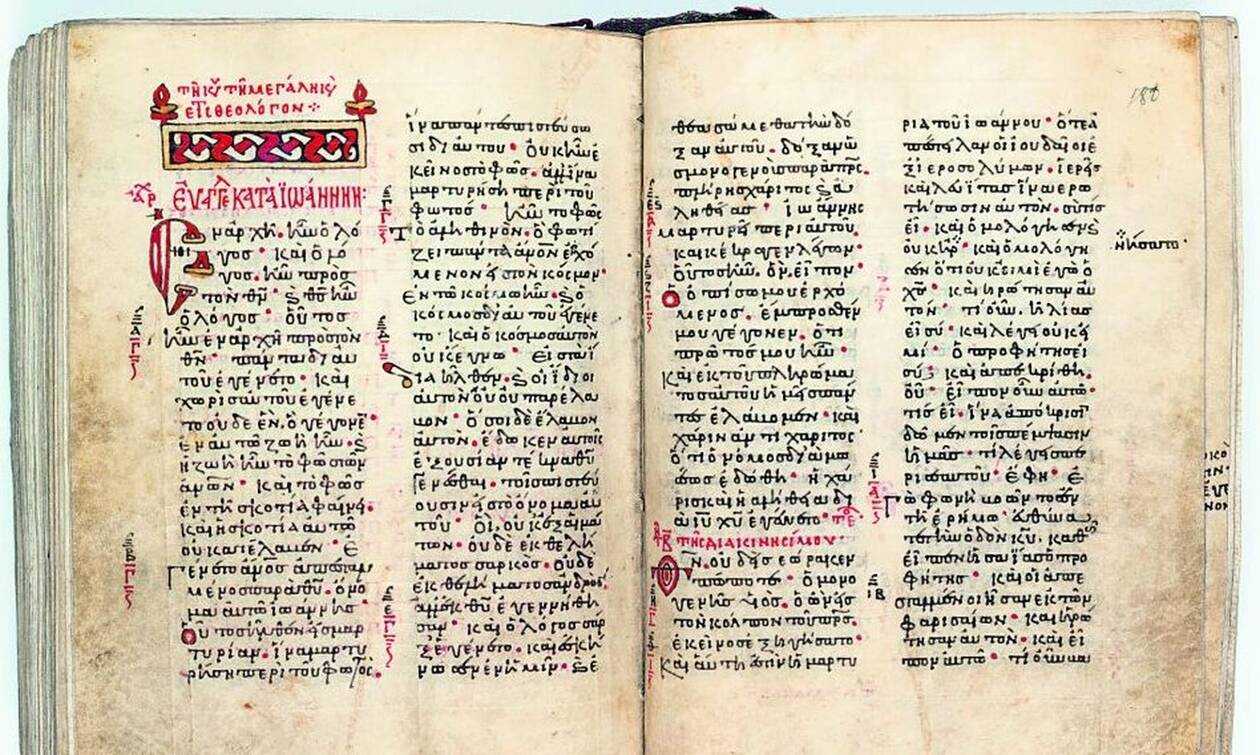 τῇ κυ τῇ μεγάλῃ
θεολόγον
ΕΥΑΓΓΕ ΚΑΤΑ ΙΩΑΝΝΗΝ:
Ἐν ἀρχῇ ἦν ὁ λό
γος · καὶ ὁ λό
γος ἦν πρὸς
τὸν θν · ϗ θς ἦν
ὁ λόγος · οὗτος
ἦν ἐν ἀρχῇ πρὸς τὸν
θν · πάντα δι αὐ
τοῦ ἐγένετο · καὶ
χωρὶς αὐτοῦ ἐγένε
το οὐδὲ ἕν. ὃ γέγονε ·
ἐν αὐτῷ ζωὴ ἦν · ϗ
ἡ ζωὴ ἦν τὸ φῶς τῶν
ἀνων · καὶ τὸ φῶς
ἐν τῇ σκοτίᾳ φαίνει ·
καὶ ἡ σκοτία αὐτὸ
οὐ κατέλαβεν · Ἐ
γένετο ἄνος ἀπεσταλ
μένος παρὰ θυ · ὄνο
μα αὐτῷ ἰωάννης ·
Οὗτος ἦλθεν εἰς μαρ
τυρίαν · ἵνα μαρτυ
ρήσῃ περὶ τοῦ φωτὸς ·
ἵνα πάντες πιστεύσω
σι δι αὐτοῦ · Οὐκ ἦν ἐ
κεῖνος τὸ φῶς · ἀλλ ἵνα
μαρτυρήσῃ περὶ τοῦ
φωτός · ἦν τὸ φῶς
τὸ ἀληθινὸν · ὃ φωτί
ζει πάντα ἄνον ἐρχό
μενον εἰς τὸν κόσμον ·
ἐν τῷ κόσμῳ ἦν · ϗ ὁ
κόσμος δι αὐτοῦ ἐγένε
το · καὶ ὁ κόσμος αὐτὸν
οὐκ ἔγνω · Εἰς τὰ ἴδ
ια ἦλθεν · ϗ οἱ ἴδιοι
αὐτὸν οὐ παρέλα
βον · ὅσοι δὲ ἔλαβον
αὐτὸν · ἔδωκεν αὐτοῖς
ἐξουσίαν τέκνα θυ
γενέσθαι · τοῖς πιστεύ
ουσιν εἰς τὸ ὄνομα αὐ
του · Οἳ οὐκ ἐξ αἱμά
των · οὐδὲ ἐκ θελή
ματος σαρκὸς · οὐδὲ
ἐκ θελήματος ἀνδρὸς
ἀλλ ἐκ θυ ἐγεννήθη
σαν · καὶ ὁ λόγος σὰρ
ξ ἐγένετο · καὶ ἐσκή
νωσεν ἐν ἡμῖν · ϗ ἐ
180
θεασάμεθα τὴν δό
ξαν αὐτοῦ · δόξαν ὡ
ς μονογενοῦς παρὰ πρς ·
πλήρης χάριτος ϗ ἀ
ληθείας · ἰωάννης
μαρτυρεῖ περὶ αὐτοῦ ·
καὶ κέκραγε λέγων ·
Οὗτος ἦν · ὃν εἶπον ·
ὁ ὀπίσω μου ἐρχό
μενος · ἔμπροσθέν
μου γέγονεν · ὅτι
πρῶτός μου ἦν ·
Καὶ ἐκ τοῦ πληρώμα
τος αὐτοῦ ἡμεῖς πάν
τες ἐλάβομεν · καὶ
χάριν ἀντὶ χάριτος ·
ὅτι ὁ νόμος διὰ μω
σέως ἐδόθη · ἡ χά
ρις καὶ ἡ ἀλήθεια δι
ὰ ιυ χυ ἐγένετο ·
ΤΗ Β ΤΗΣ ΔΙΑΚΙΝΗΣΙΜΟΥ ·
Θν οὐδεὶς ἑώρακεν
πώποτε · ὁ μονο
γενὴς υἱός · ὁ ὢν εἰς
τὸν κόλπον τοῦ πρς ·
ἐκεῖνος ἐξηγήσατο ·
Καὶ αὕτη ἐστὶν ἡ μαρτυ
ρία τοῦ ἰωάννου · ὅτε ἀ
πέστειλαν οἱ ἰουδαῖοι ἐ
ξ ἱεροσολύμων · ἱερεῖς
καὶ λευίτας ἵνα ἐρω
τήσωσιν αὐτὸν · σὺ τίς
εἶ · καὶ ὡμολόγησε ϗ
οὐκ ἠρ · καὶ ὡμολόγη
ἠρνήσατο ·
σεν ὅτι οὐκ εἰμὶ ἐγὼ ὁ
χς · καὶ ἠρώτησαν αὐ
τὸν · τί οὖν · ἠλίας
εἶ σύ · καὶ λέγει οὐκ εἰ
μί · ὁ προφήτης εἶ
σύ · καὶ ἀπεκρίθη ·
οὔ · εἶπον οὖν αὐτῷ ·
τίς εἶ · ἵνα ἀπόκρισι
δῶμεν τοῖς πέμψασιν
ἡμᾶς · τί λέγεις πε
ρὶ σεαυτοῦ · ἔφη · ἐ
γὼ φωνὴ βοῶντος ἐν
τῇ ἐρήμῳ · εὐθύνα
τε τὴν ὁδὸν κυ · καθὼς
εἶπεν ἡσαΐας ὁ προ
φήτης · καὶ οἱ ἀπε
σταλμένοι ἦσαν ἐκ τῶν
φαρισαίων · καὶ ἠρώ
τησαν αὐτὸν · καὶ εἶ
πον αὐτῷ · τί οὖν βα